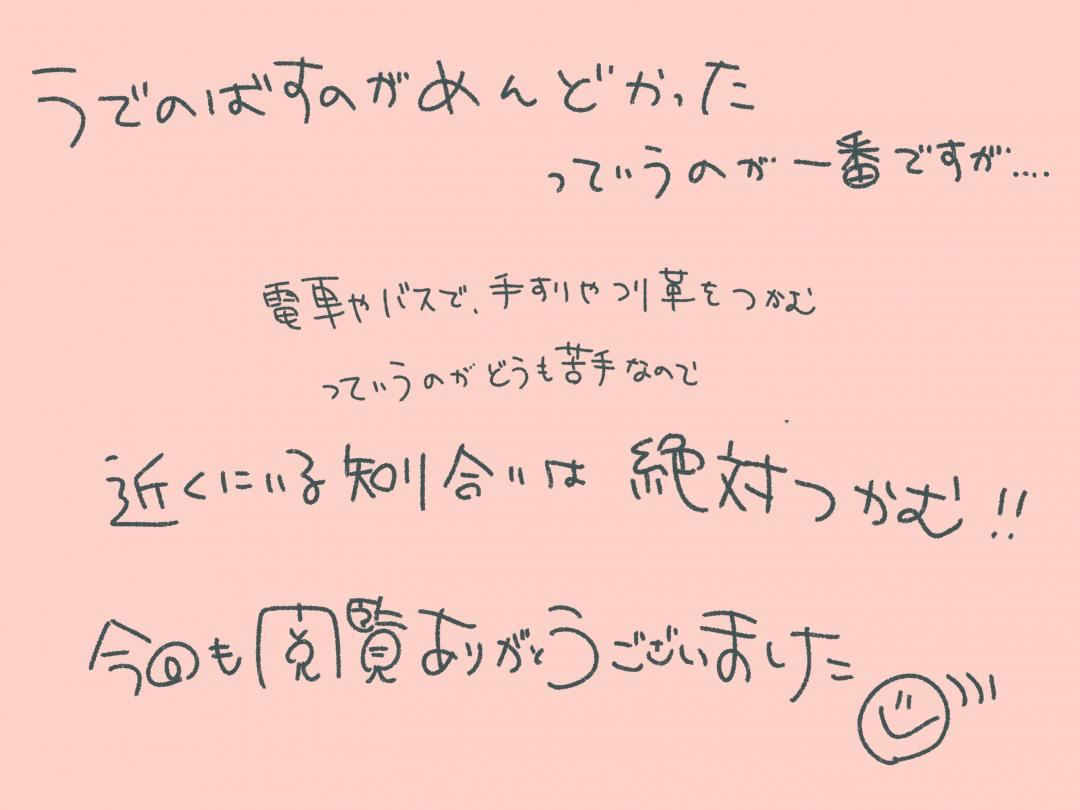 うでのばすのがめんどかった
っていうのが一番ですが....
電車やバスで、手すりやつり革をつかむ
っていうのがどうも苦手なので
近くにいる知り合いは絶対つかむ!!
今回も閲覧ありがとうございました